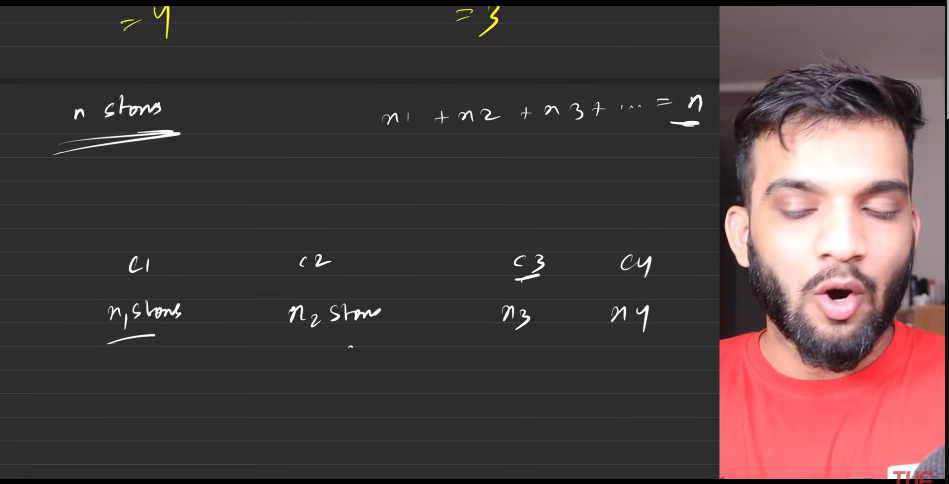 = 4 = 3
n stons x1 + x2 + x3 + ... = n
c1 c2 c3 c4
x1 stons x2 stons x3 x4
THE